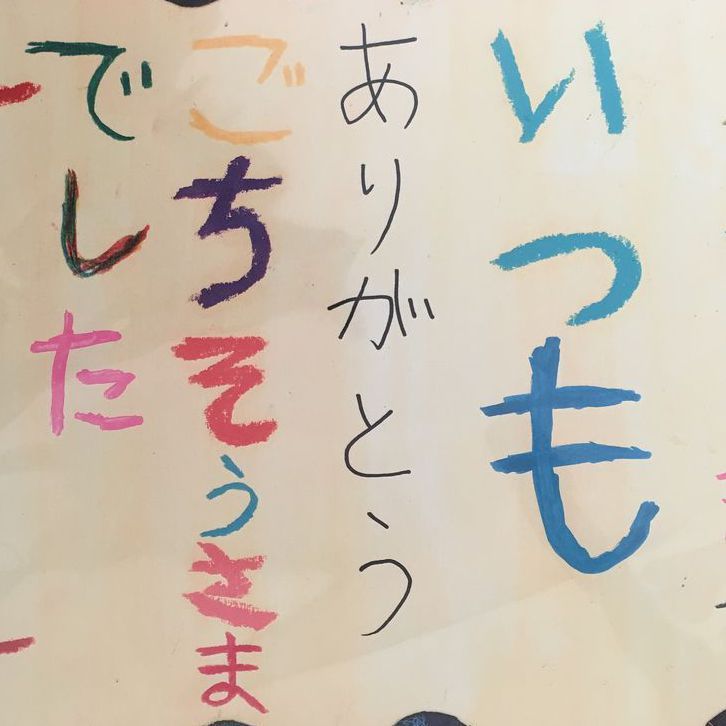 いつも
ありがとう
ごちそうさま
でした